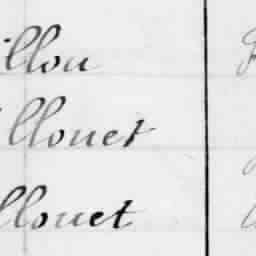 illou
illouet
llouet